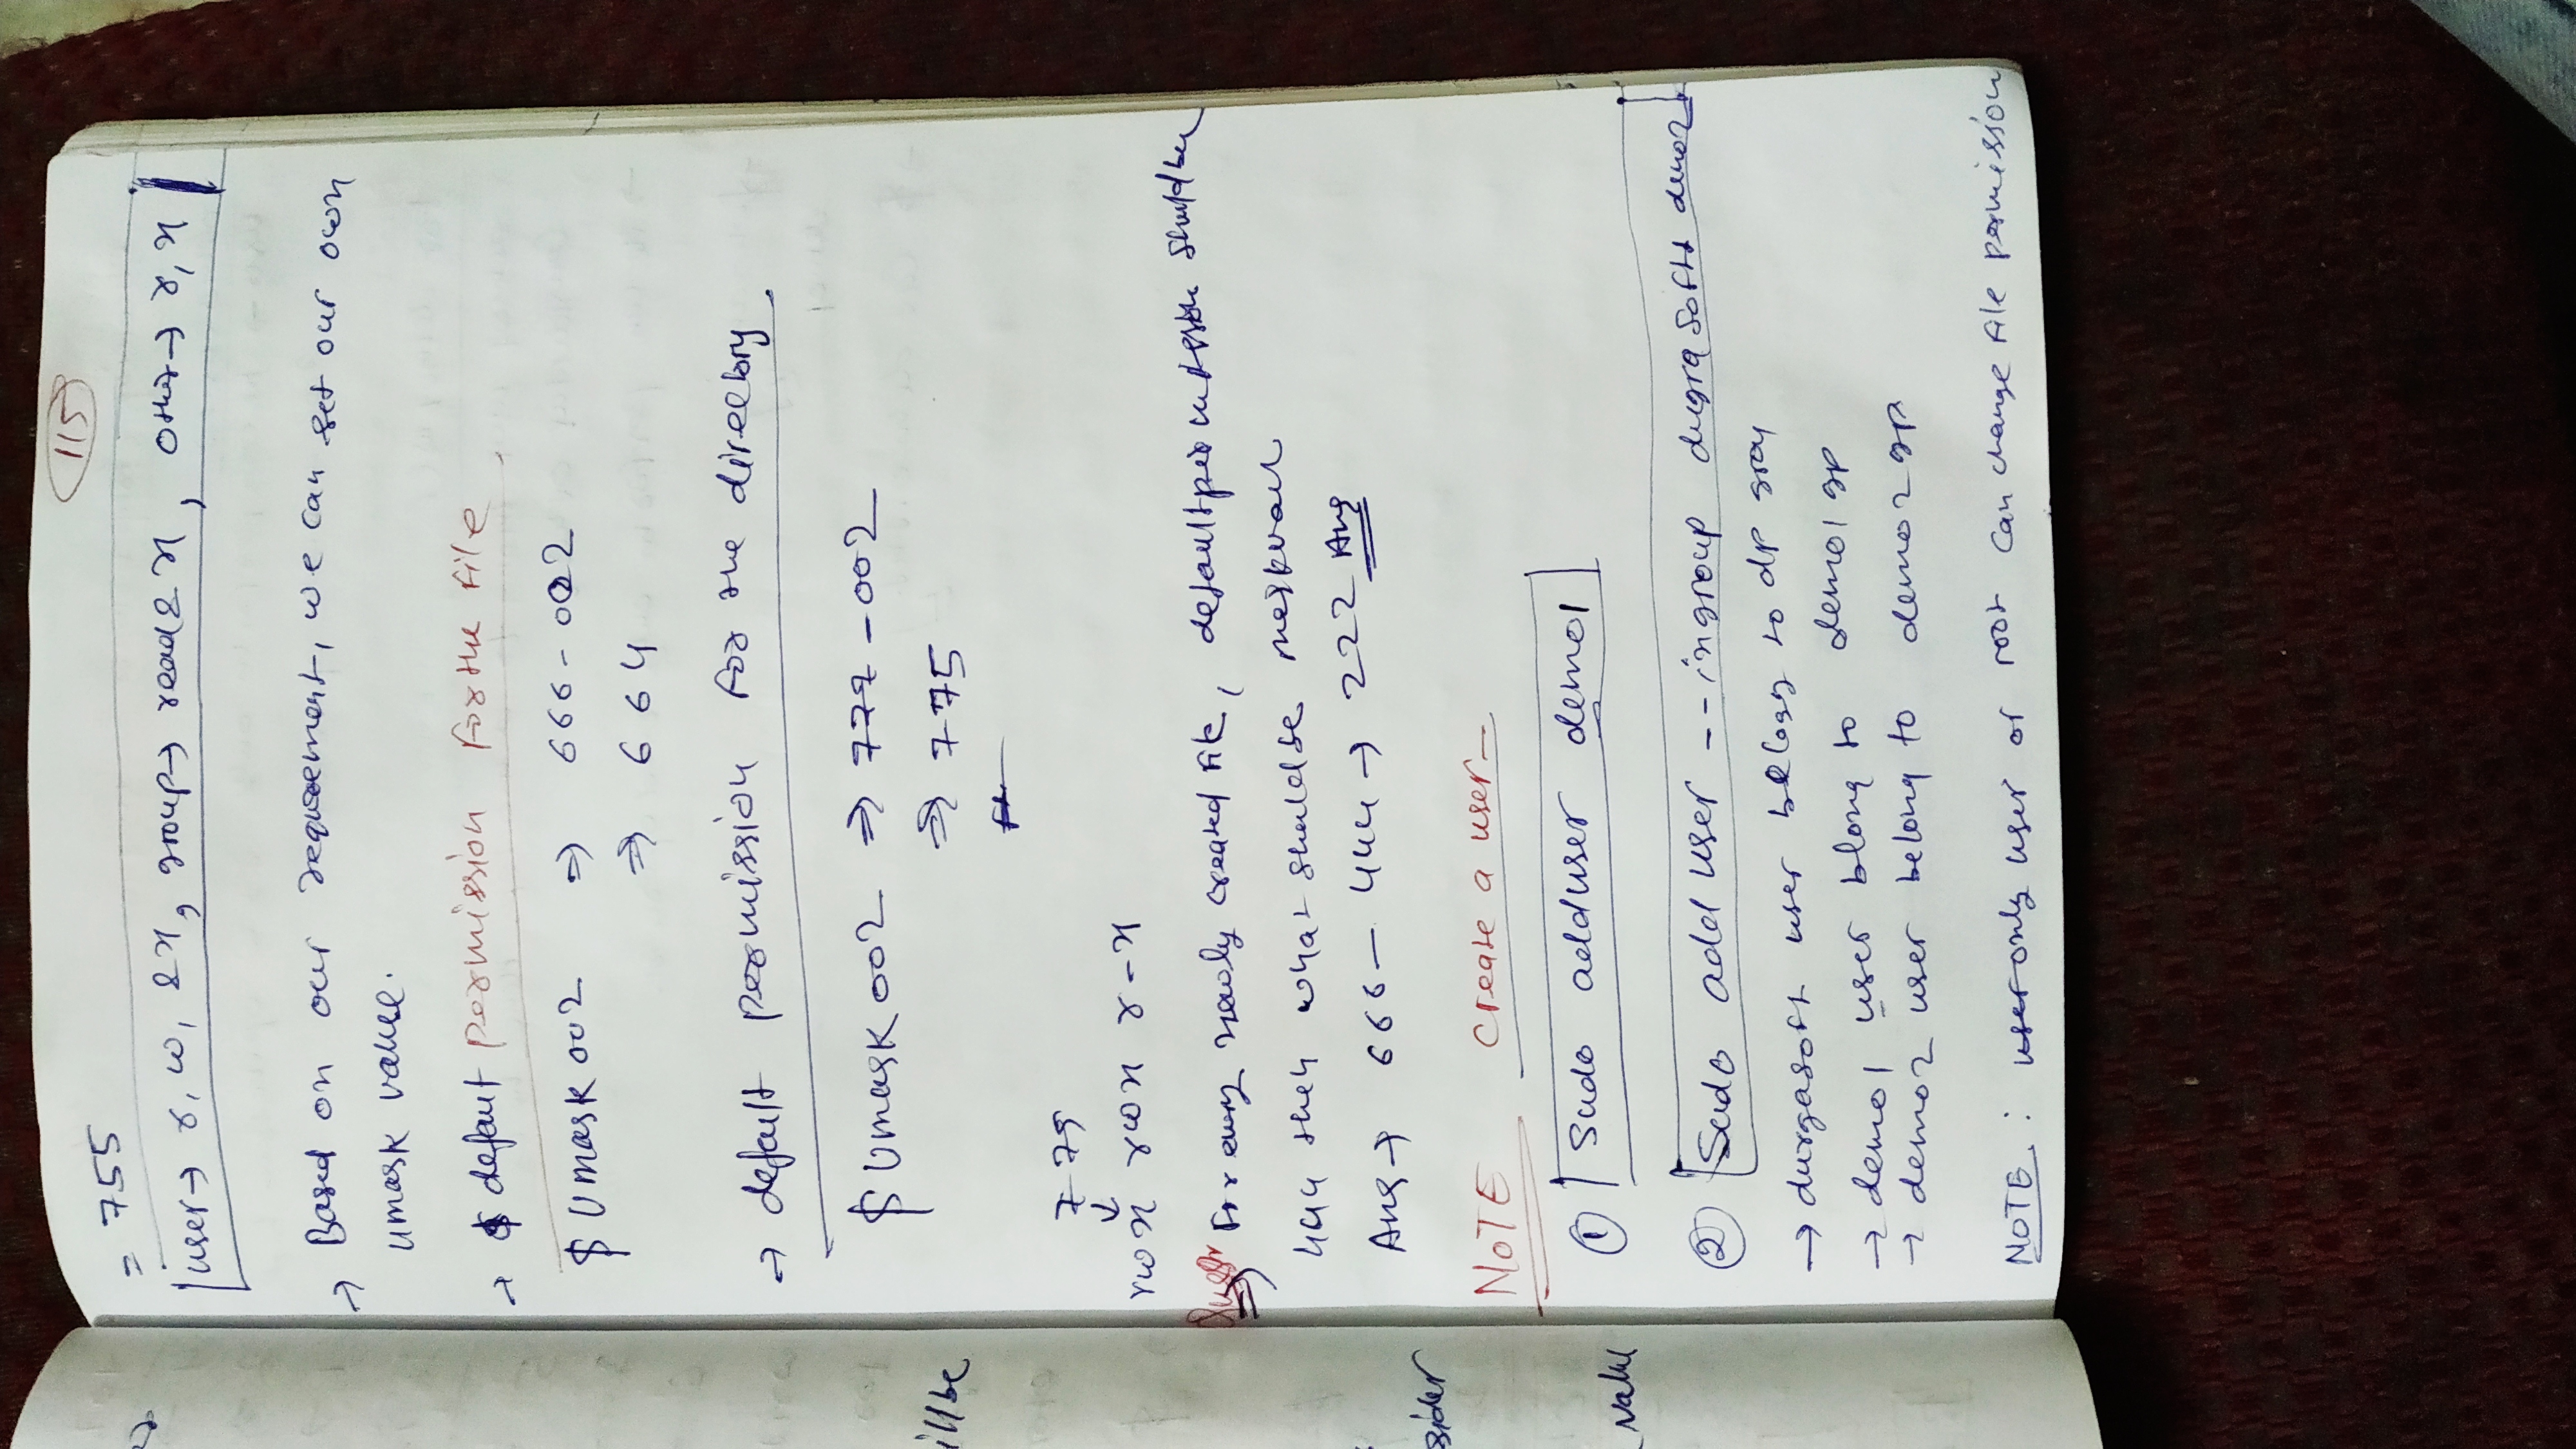 115
= 755
user → r, w, & x, group → read & x, other → r, x
→ Based on our requirement, we can set our own
umask value.
→ $ defaut permission For the File
$ Umask 002 ⇒ 666 - 002
⇒ 664
→ default permission for the directory
$ Umask 002 ⇒ 777 - 002
⇒ 775
775
↓
rwx rwx r-x
⇒ For every newly created file, default permission should be
444 then what should be
Ans → 666 - 444 → 222 Ans
NOTE Create a user -
① Sudo adduser demo1
② Sudo add user --ingroup dugrasoftt demo2
→ durgasoft user to dp
→ demo1 user blong to demo1 gp
→ demo2 user belong to demo2 gp
NOTE : only user or root can change file permission
illbe
sider
value